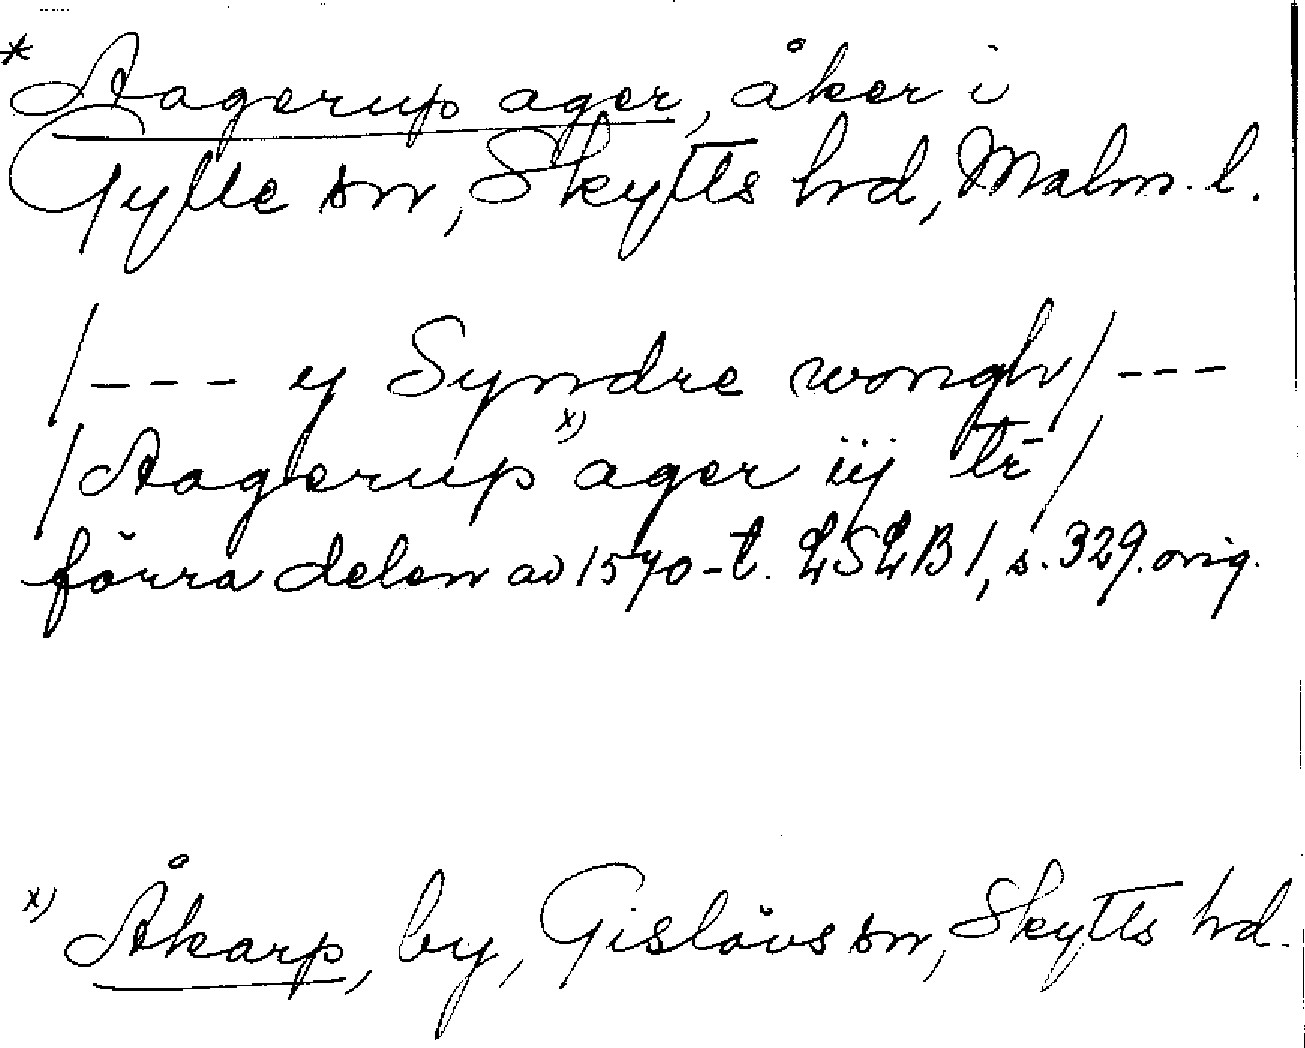 * Aagerup ager, åker i
Gylle sn, Skytts hrd, Malm. l.
/--- y Syndre wongh/---
/Aagerup x) ager iij tr/
förra delen av 1570-t. LSLB 1, s. 329. orig.
x) Åkarp, by, Gislövs sn, Skytts hrd.